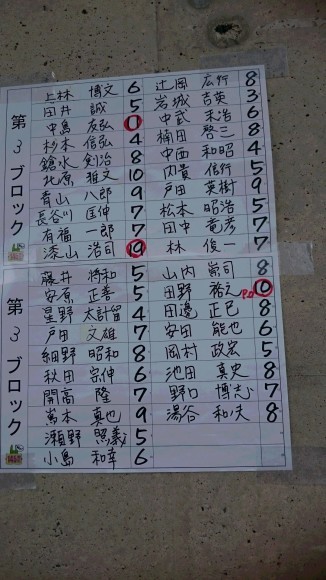 第3ブロック
上林 博文 6
田井 誠 5
中島 友弘 11
杉本 信弘 4
鎗水 剣治 8
北原 雅文 10
青山 八郎 9
長谷川 匡伸 7
有福 一郎 7
漆山 浩司 19
辻岡 広行 8
岩城 吉英 3
中武 末治 6
楠田 啓三 8
中西 和昭 4
内貴 信行 5
戸田 英樹 9
松本 昭浩 5
田中 竜彦 7
林 俊一 7
第3ブロック
藤井 将和 5
安原 正善 5
星野 太計留 4
戸田 文雄 7
細野 昭和 8
秋田 宗伸 6
開高 隆 7
嵩本 真也 9
瀬野 照義 5
小島 和幸 6
山内 崇司 8
田野 裕之 P.O 10
田邊 正巳 8
安田 能也 6
岡村 政宏 5
池田 真史 8
野口 博志 7
湯谷 和夫 8